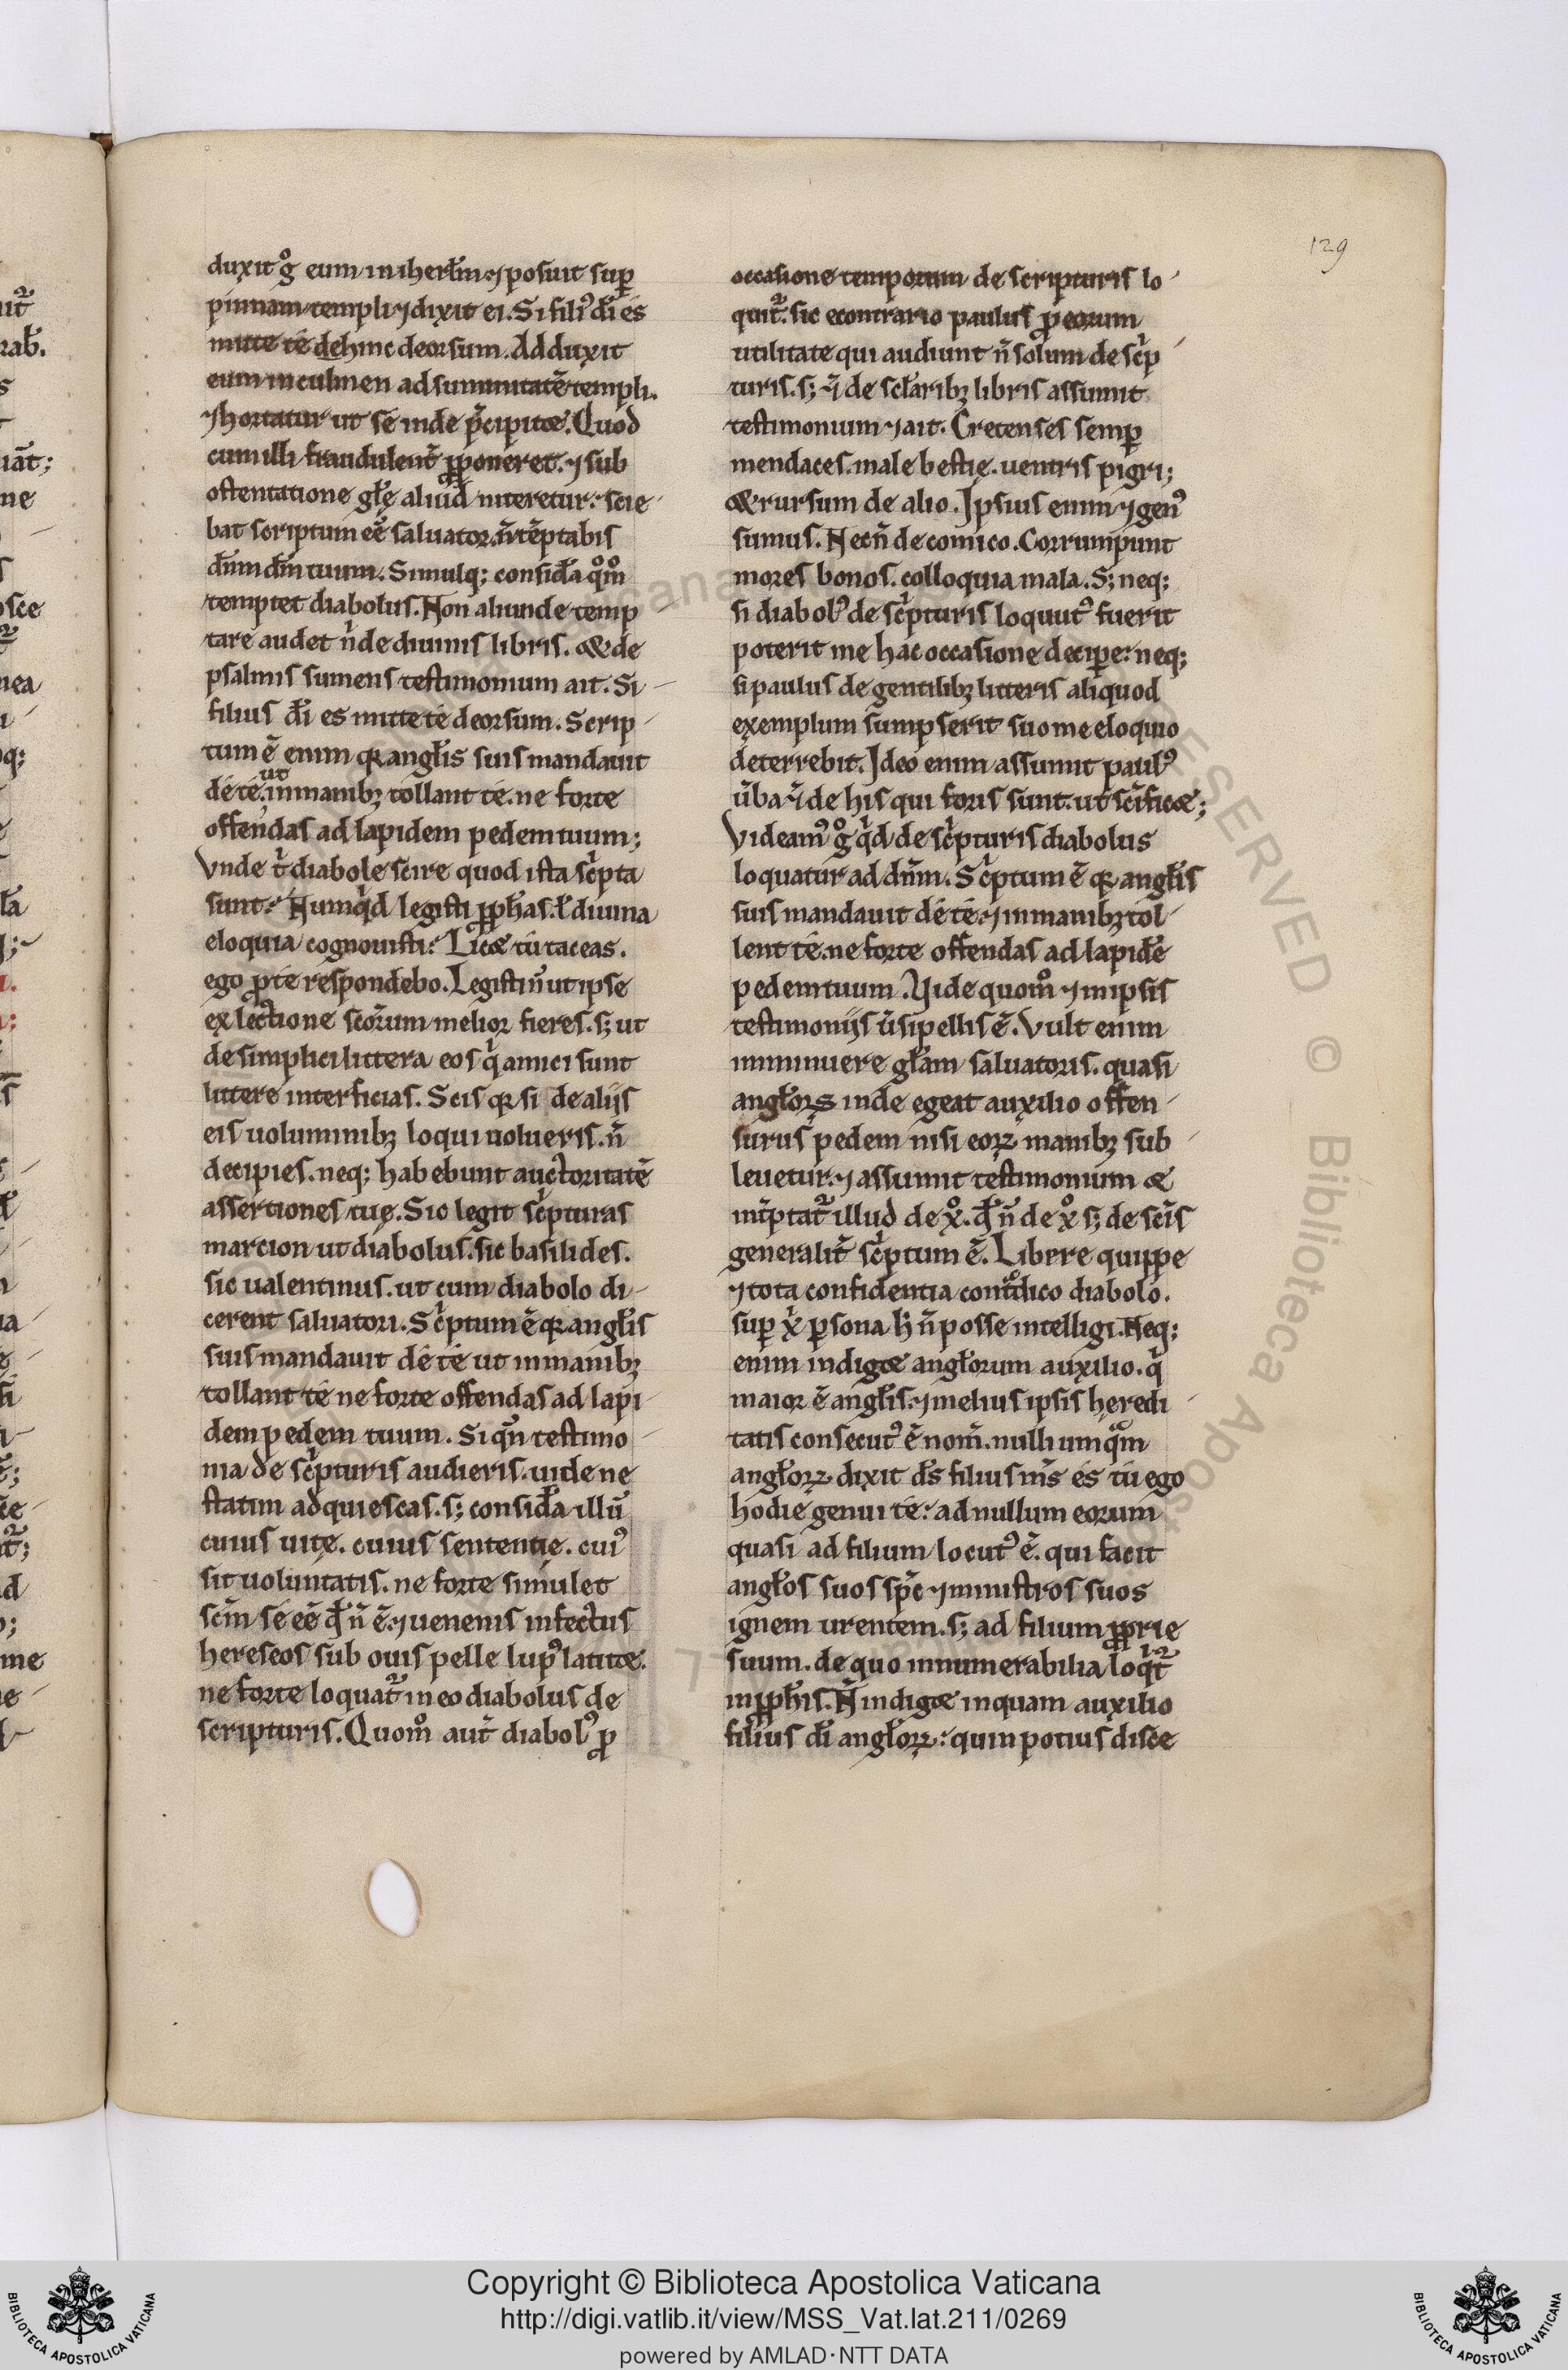 129
duxit g̊ eum in iherl̄m. ⁊ posuit sup̱
pinnam templi ⁊ dixit ei. Si fili⁹ dī es
mitte te dehinc deorsum. Adduxit
eum in culmen ad summitatē templi.
⁊ hortatur ut se inde p̄cipitet. Quod
cum illi fraudulent̄ ꝓponeret. ⁊ sub
ostentatione glę aliud niteretur: scie
bat scriptum eē saluator. n̄ tēptabis
dn̄m dm̄ tuum. Simulq; consid̄a qͦmͦ
temptet diabolus. Non aliunde temp
tare audet n̍ de diuinis libris. & de
psalmis sumens testimonium ait. Si
filius dī es mitte te deorsum. Scrip
tum ē enim qꝛ angl̄is suis mandauit
de te. ut in manibꝫ tollant te. ne forte
offendas ad lapidem pedem tuum;
Vnde t̍ diabole scire quod ista sc̍pta
sunt: Numq̍d legisti ꝓph̄as. ł diuina
eloquia cognouisti: Licet tu taceas.
ego ꝓ te respondebo. Legisti n̄ ut ipse
ex lectione sc̄orum melior fieres. s; ut
de simplici littera eos q̍ amici sunt
littere interficias. Scis qꝛ si de alijs
eis uoluminibꝫ loqui uolueris. n̄
decipies. neq; habebunt auctoritatē
assertiones tuę. Sic legit sc̍pturas
marcion ut diabolus. sic basilides.
sic ualentinus. ut cum diabolo di
cerent saluatori. Sc̍ptum ē qꝛ angl̄is
suis mandauit de te ut in manibꝫ
tollant te ne forte offendas ad lapi
dem pedem tuum. Si qn̄ testimo
nia de sc̍pturis audieris. uide ne
statim adquiescas. s; consid̄a illū
cuius uitę. cuius sententie. cui⁹
sit uoluntatis. ne forte simulet
sc̄m se eē q̄ n̄ ē. ⁊ uenenis infectus
hereseos sub ouis pelle lup⁹ latitet.
ne forte loquat᷑ in eo diabolus de
scripturis. Quomͦ aut̄ diabol⁹ ꝓ
occasione temporum de scripturis lo
quit᷑. sic econtrario paulus ꝓ eorum
utilitate qui audiunt n̄ solum de sc̍p
turis. s; ⁊ de scl̄aribꝫ libris assumit
testimonium ⁊ ait. Cretenses semp̱
mendaces. male bestię. uentris pigri;
& rursum de alio. Ipsius enim ⁊ gen⁹
sumus. Necn̄ de comico. Corrumpunt
mores bonos. colloquia mala. S; neq;
si diabol⁹ de sc̍pturis loquut⁹ fuerit
poterit me hac occasione decip̱e: neq;
si paulus de gentilibꝫ litteris aliquod
exemplum sumpserit suo me eloquio
deterrebit. Ideo enim assumit paul⁹
ūba ⁊ de his qui foris sunt. ut sc̄ificet;
Videam⁹ g̊ q̍d de sc̍pturis diabolus
loquatur ad dn̄m. Sc̍ptum ē qꝛ angl̄is
suis mandauit de te. ⁊ in manibꝫ tol
lent te. ne forte offendas ad lapidē
pedem tuum. Vide quomͦ ⁊ in ipsis
testimonijs ūsipellis ē. Vult enim
imminuere gl̄am saluatoris. quasi
angl̄oꝝ inde egeat auxilio offen
surus pedem nisi eoꝝ manibꝫ sub
leuetur. ⁊ assumit testimonium &
int̄ptat᷑ illud de xͦ. q̄ n̄ de xͦ s; de sc̄is
generalit̄ sc̍ptum ē. Libere quippe
⁊ tota confidentia contͣdico diabolo.
sup̱ x̍ p̱sona h̄ n̄ posse intelligi. Neq;
enim indiget angl̄orum auxilio. q̍
maior ē angl̄is. ⁊ melius ipsis heredi
tatis consecut⁹ ē nom̄. nulli umqͣm
angl̄oꝝ dixit ds̄ filius ms̄ es tu ego
hodie genui te: ad nullum eorum
quasi ad filium locut⁹ ē. qui facit
angl̄os suos sp̄c ⁊ ministros suos
ignem urentem. s; ad filium ꝓprie
suum. de quo innumerabilia loq̍t᷑
in ꝓph̄is. N̄ indiget inquam auxilio
filius dī angl̄oꝝ: quin potius disce
Copyright © Biblioteca Apostolica Vaticana
http://digi.vatlib.it/view/MSS_Vat.lat.211/0269
powered by AMLAD·NTT DATA